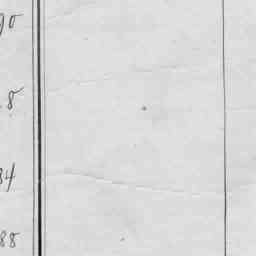 90
8
34
88